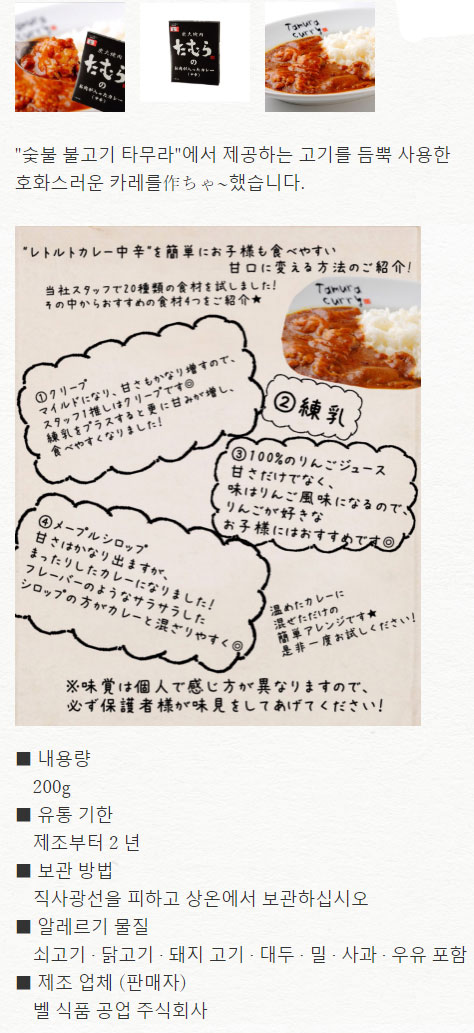 炭火焼肉
たむら
の
お肉が入ったカレー
(中辛)
炭火焼肉
たむら
の
お肉が入ったカレー
(中辛)
Tamura
curry
"숯불 불고기 타무라"에서 제공하는 고기를 듬뿍 사용한
호화스러운 카레를作ちゃ~했습니다.
"レトルトカレー中辛"を簡単にお子様も食べやすい
甘口に変える方法のご紹介!
当社スタッフで20種類の食材を試しました!
その中からおすすめの食材4つをご紹介★
Tamura
curry
①クリープ
マイルドになり、甘さもかなり増すので、
スタッフ1推しはクリープです◎
練乳をプラスすると更に甘みが増し、
食べやすくなりました!
②練乳
③100%のりんごジュース
甘さだけでなく、
味はりんご風味になるので、
りんごが好きな
お子様にはおすすめです◎
④メープルシロップ
甘さはかなり出ますが、
まったりしたカレーになりました!
フレーバーのようなサラサラした
シロップの方がカレーと混ざりやすく◎
温めたカレーに
混ぜただけの
簡単アレンジです★
是非一度お試しください!
※味覚は個人で感じ方が異なりますので、
必ず保護者様が味見をしてあげてください!
■ 내용량
200g
■ 유통 기한
제조부터 2 년
■ 보관 방법
직사광선을 피하고 상온에서 보관하십시오
■ 알레르기 물질
쇠고기 · 닭고기 · 돼지 고기 · 대두 · 밀 · 사과 · 우유 포함
■ 제조 업체 (판매자)
벨 식품 공업 주식회사